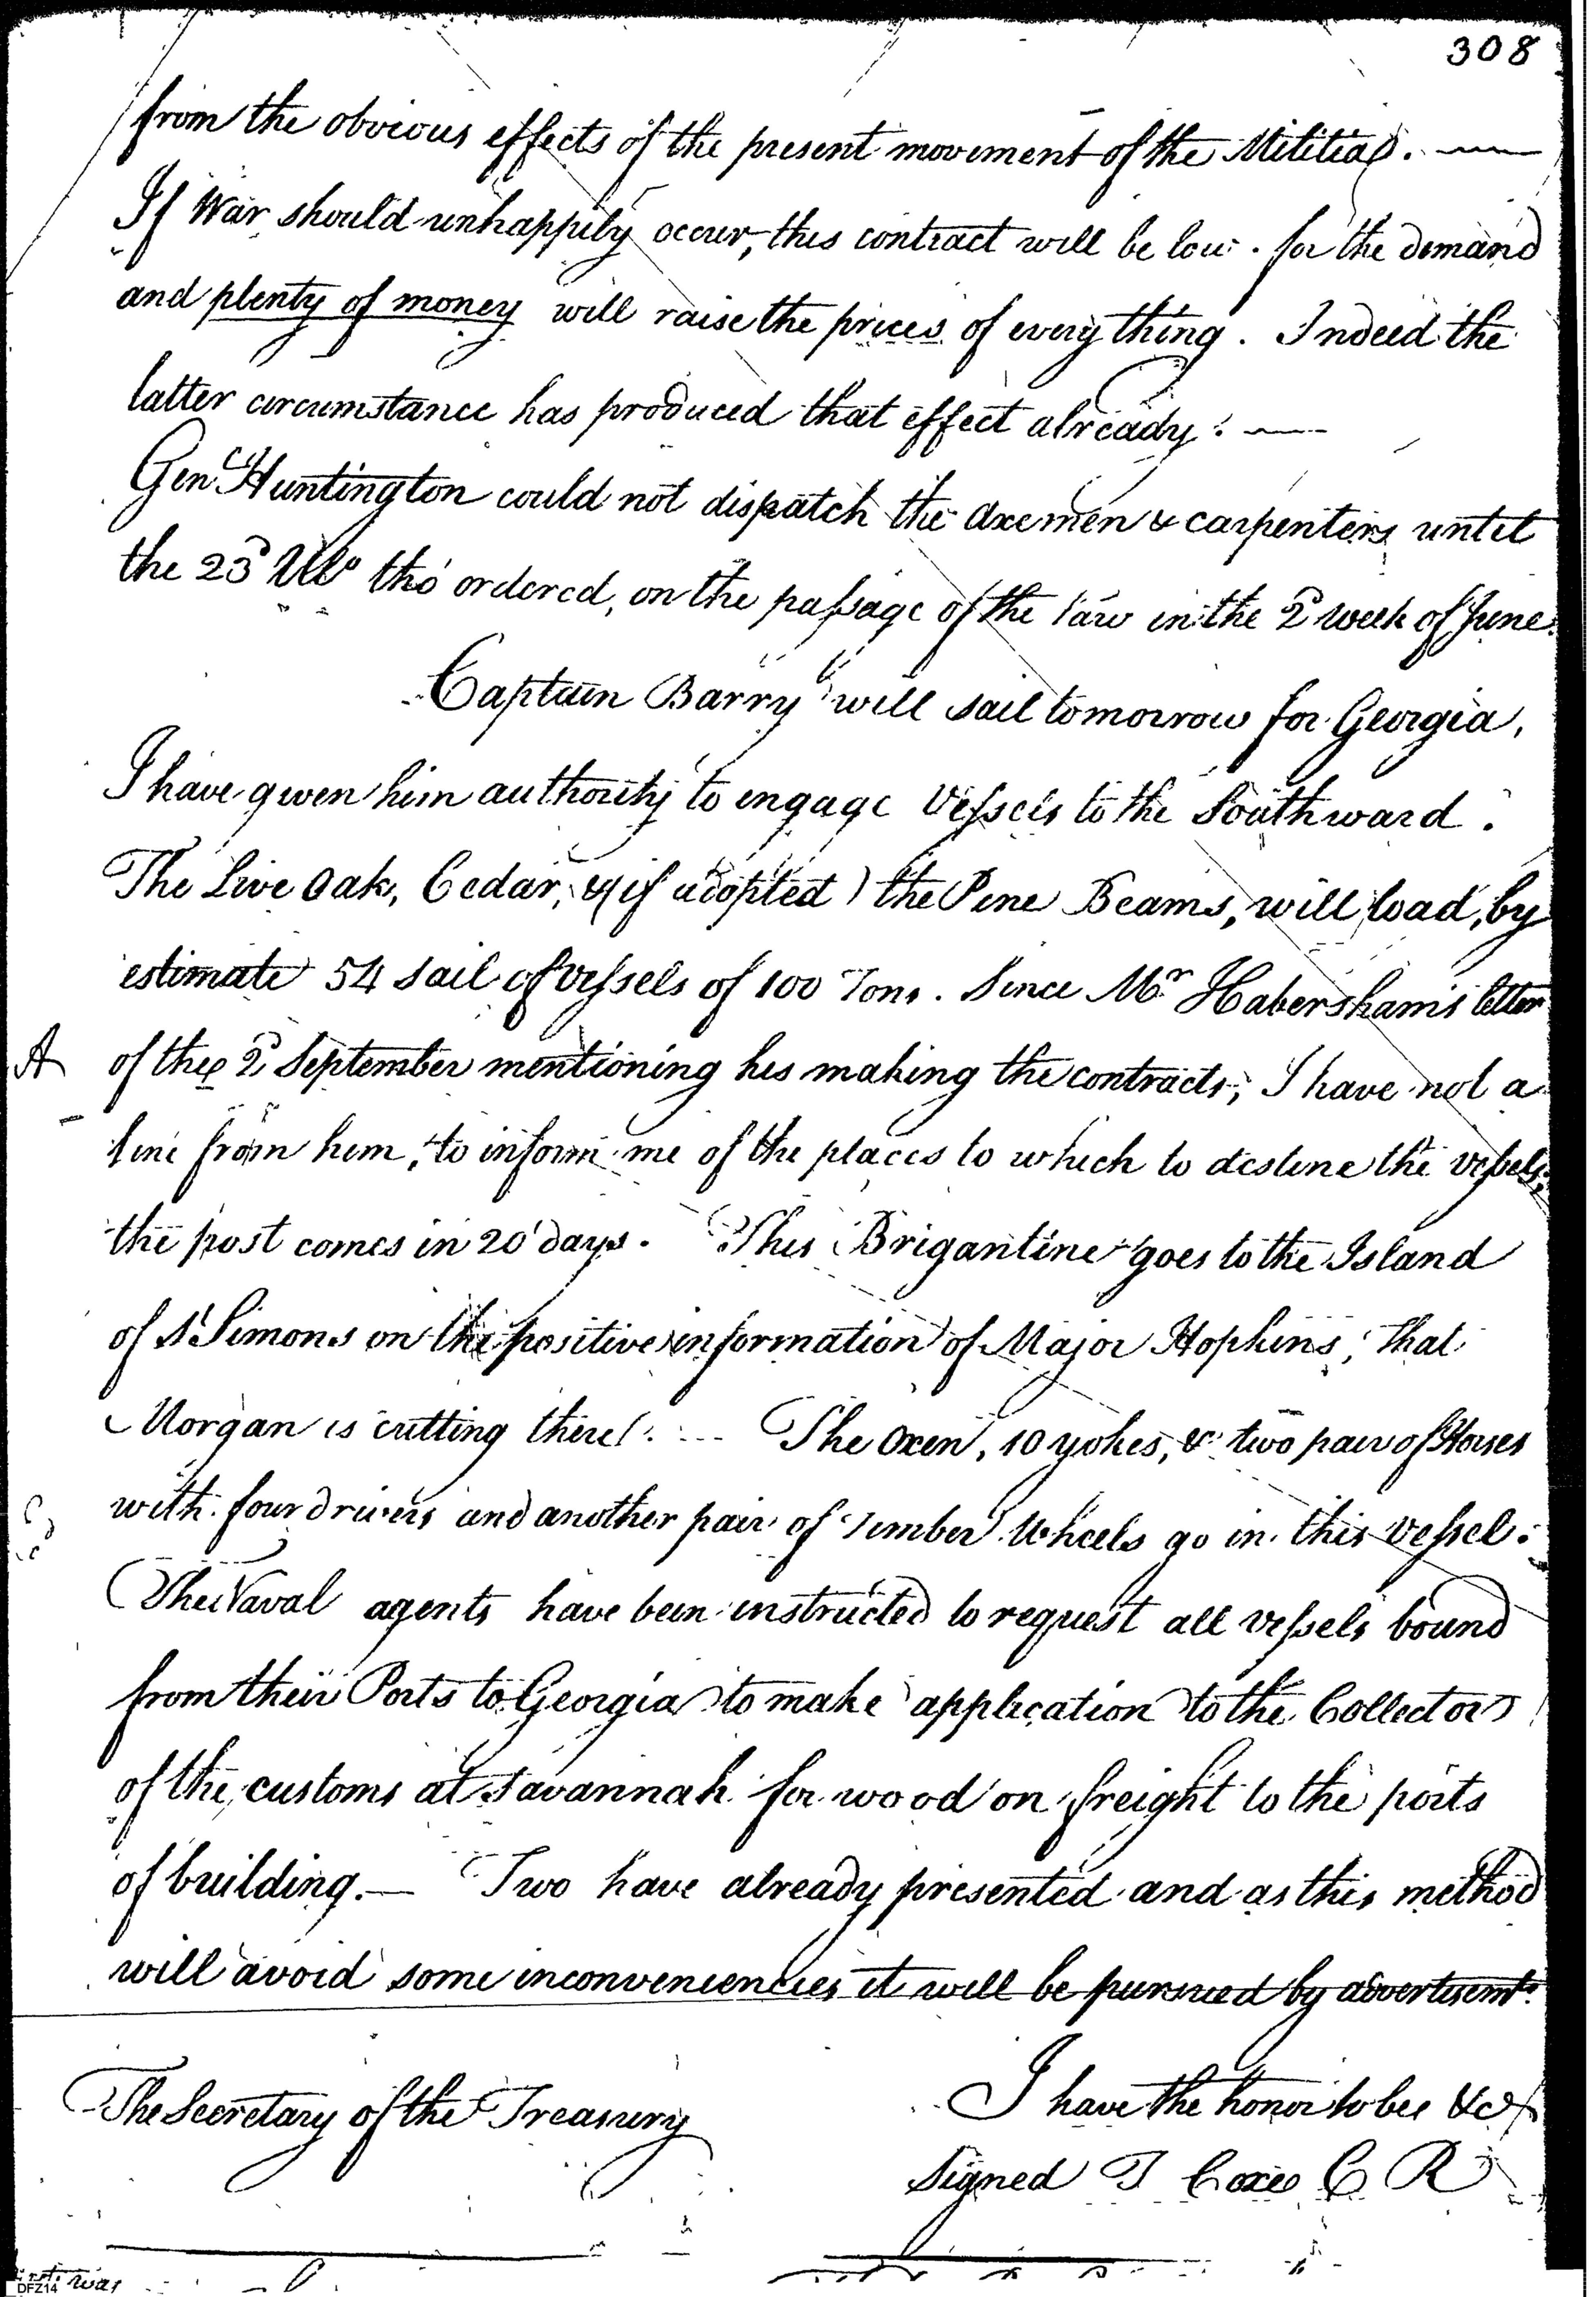 308
from the obvious effects of the present movement of the Militia. —
If War should unhappily occur, this contract will be low. for the demand
and plenty of money will raise the prices of every thing. Indeed the
latter circumstance has produced that effect already. —
Genl Huntington could not dispatch the axemen & carpenters until
the 23d Ulto tho' ordered, on the passage of the law in the 2d week of June.
Captain Barry will sail tomorrow for Georgia,
I have given him authority to engage Vessels to the Southward.
The Live Oak, Cedar, &(if adopted) the Pine Beams, will load, by
estimate 54 sail of vessels of 100 Tons. Since Mr Habersham's letter
A of the 2d September mentioning his making the contracts, I have not a
line from him, to inform me of the places to which to destine the vessels;
the post comes in 20 days. This Brigantine goes to the Island
of St Simons on the positive information of Major Hopkins, that
Morgan is cutting there. The Oxen, 10 yokes, & two pair of Horses
with four drivers and another pair of Timber Wheels go in this vessel.
The Naval agents have been instructed to request all vessels bound
from their Ports to Georgia to make application to the Collector
of the customs at Savannah for wood on freight to the ports
of building. — Two have already presented and as this method
will avoid some inconveniencies it will be pursued by advertisemts.
I have the honor to be &c
The Secretary of the Treasury
signed T Coxe C R
was
DFZ14